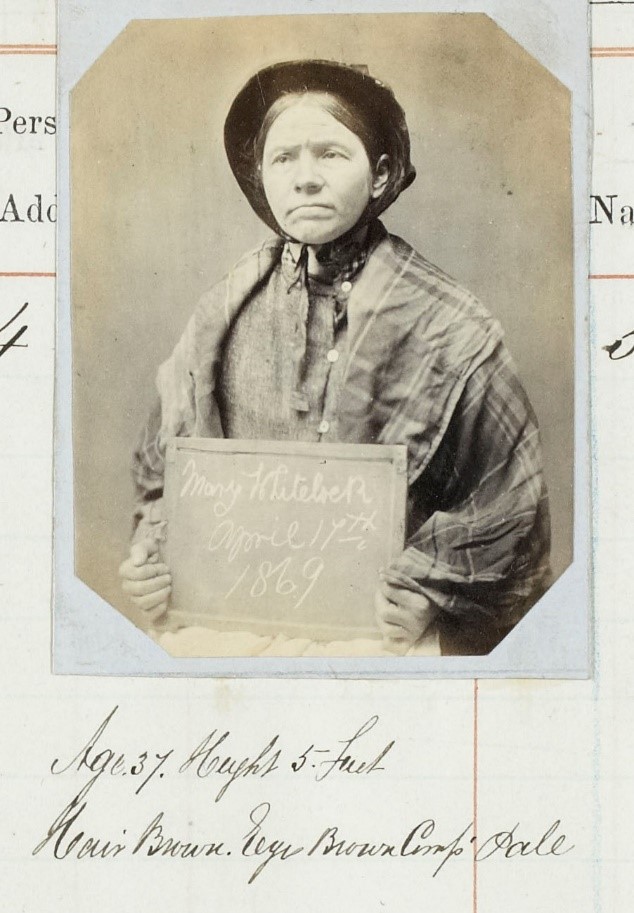 Pers
Add
Na
4
Mary Whitelock
April 17th
1869
Age. 37. Height 5 Feet
Hair Brown. Eye Brown Comp Pale